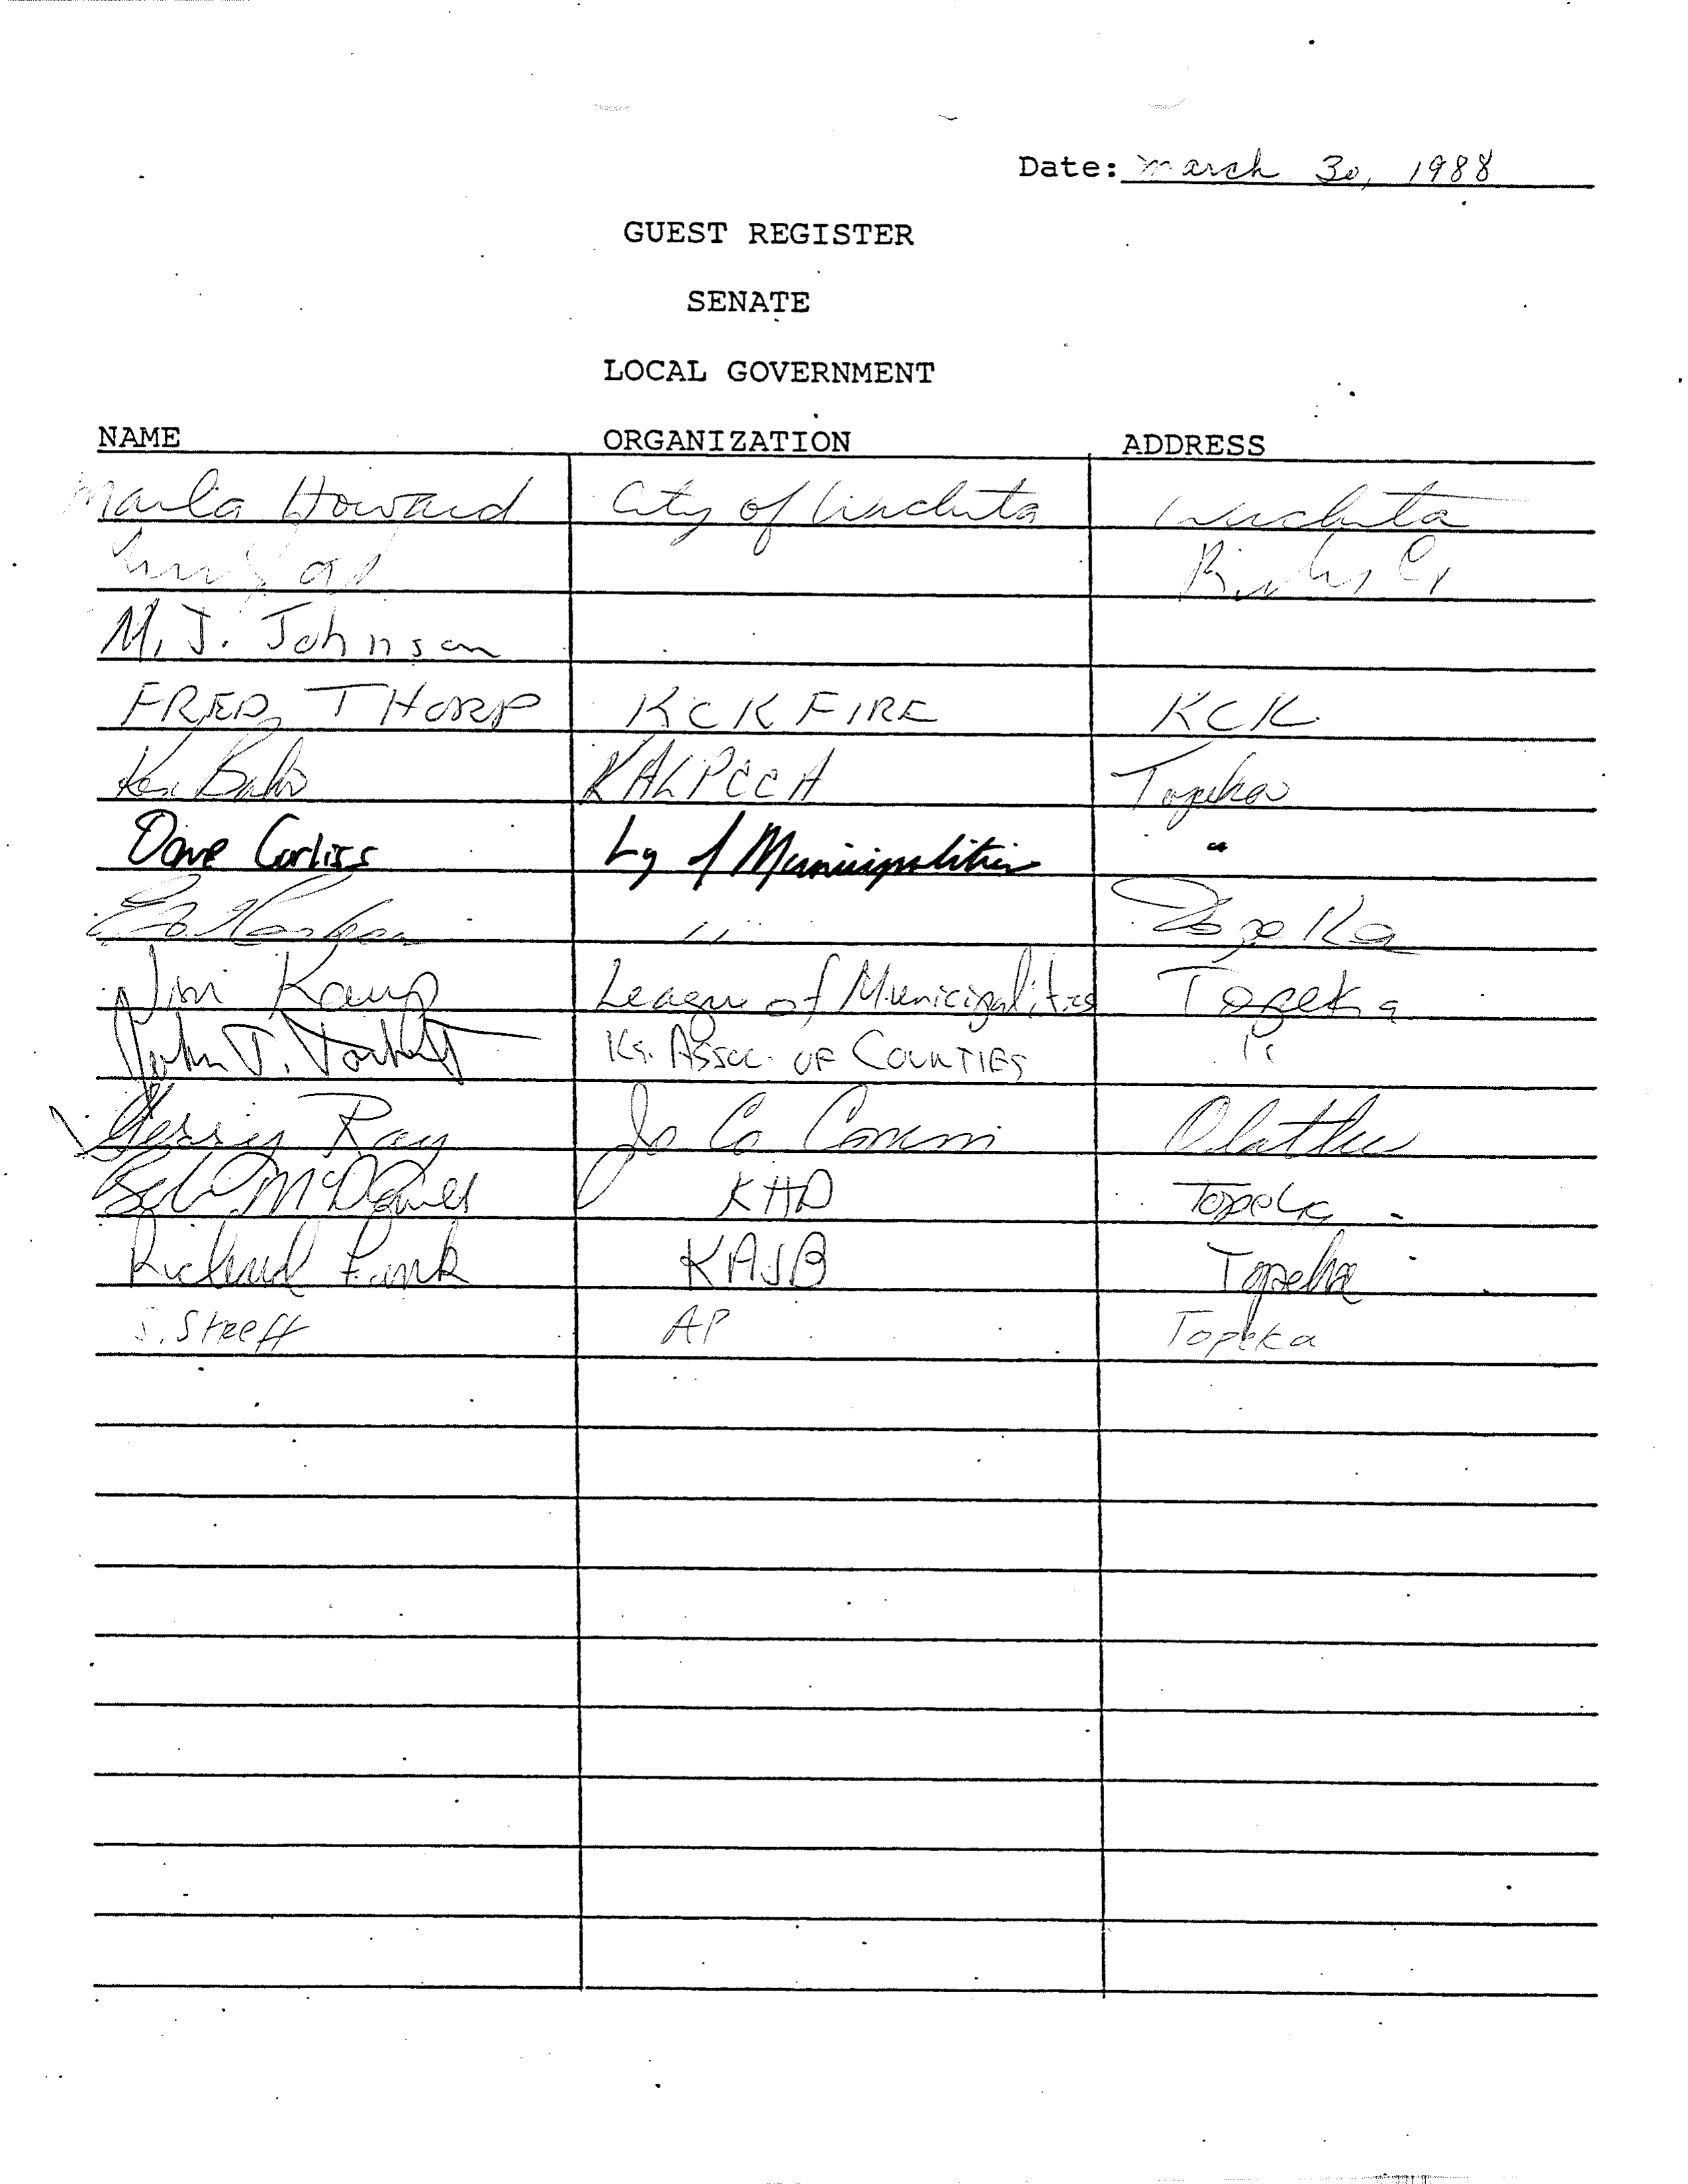 Date: March 30, 1988
GUEST REGISTER
SENATE
LOCAL GOVERNMENT
NAME ORGANIZATION ADDRESS
Marla Howard City of Wichita Wichita
M. J. Johnson
FRED THORP KCK FIRE KCK
Ken Topeka
Dave Corliss Lg of Municipalities "
Ed " Topeka
Jim Kaup League of Municipalities Topeka
John T. Torbert Ks. Assoc. OF COUNTIES "
Gerry Ray Jo Co Comm Olathe
Bob McDaniel Topeka
Richard Funk KASB Topeka
J. Streff AP Topeka